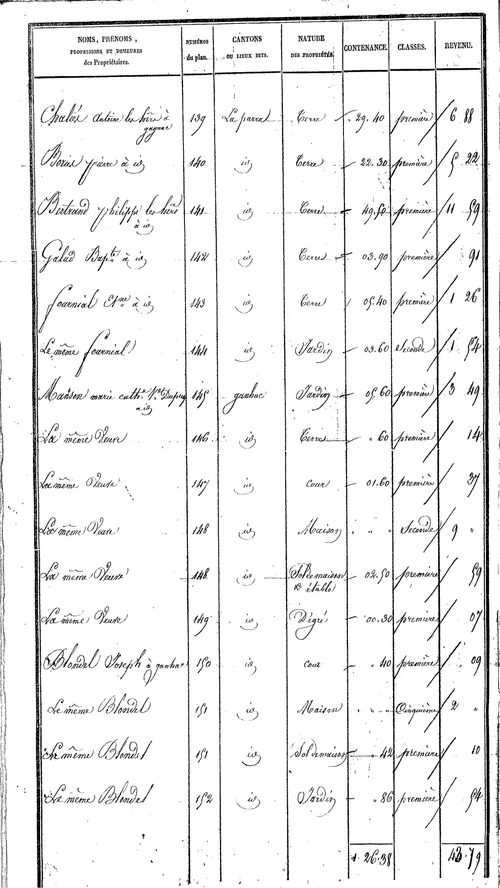 NOMS, PRÉNOMS, PROFESSIONS ET DEMEURES des Propriétaires. NUMÉROS du plan. CANTONS OU LIEUX DITS. NATURE DES PROPRIÉTÉS. CONTENANCE. CLASSES. REVENU.
antoine les hers à 139 La parra Terre 29.40 première 6 88
pierre à id 140 id Terre 22.30 première 5 22
Bertrand philippe les hers 141 id Terre 49.50 première 11 59
à id
Galad Bapte à id 142 id Terre 03.90 première 91
fournial Etne à id 143 id Terre 05.40 première 1 26
Le même fournial 144 id Jardin 03.60 Seconde 1 54
marie cathe Ve Dupuy 145 ganhac Jardin 05.60 première 3 49
à id
La même Veuve 146 id Terre " 60 première 14
La même Veuve 147 id cour 01.60 première 37
La même Veuve 148 id Maison " " " Seconde 9 "
La même Veuve 148 id Sol de maison 02.50 première 59
& étable
La même Veuve 149 id Dégré 00.30 première 07
Blondel Joseph à ganhac 150 id cour " 40 première 09
Le même Blondel 151 id Maison " " " Cinquième 2 "
Le même Blondel 151 id Sol de maison " 42 première 10
Le même Blondel 152 id Jardin " 86 première 54
1.26.38 43.79